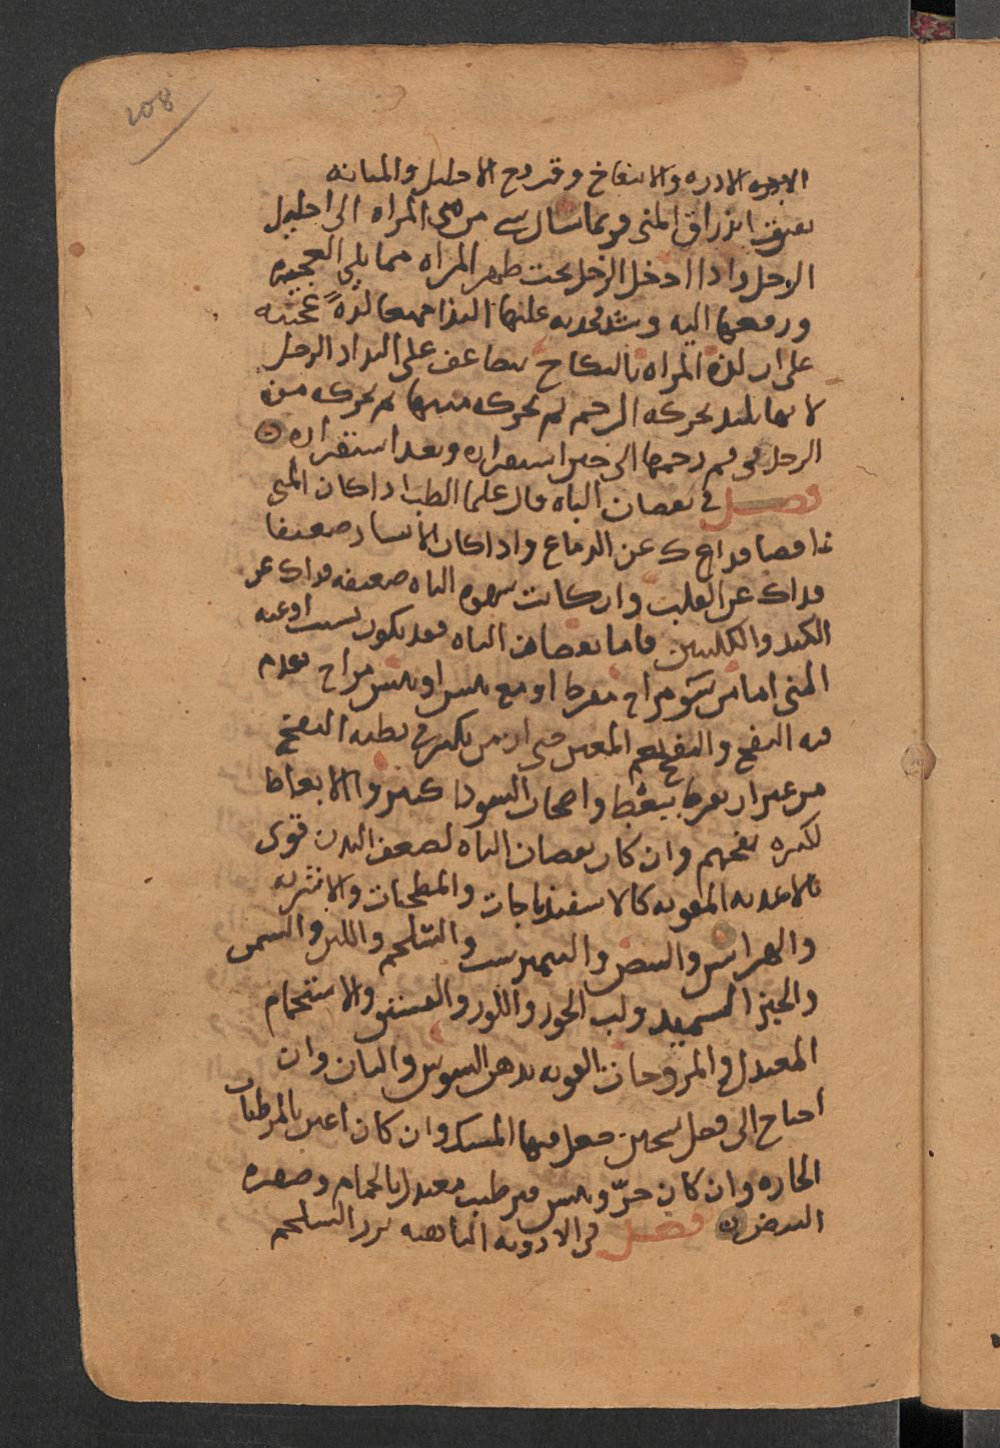 208
الادره والانتفاخ وقروح الاحليل والمثانه
بعنف انزراق المنى وربما سال شي من منى المراه الى احليل
الرجل واذا ادخل الرجل تحت ظهر المراه مما يلي العجيزه
ورفعها اليه وشد فخذيه عليها التذا جميعا لذةً عجيبه
على ان لذه المراه بالنكاح تتضاعف على التذاذ الرجل
لانها تلتذ بحركه الرحم ثم بحركه منيها ثم بحركه منى
الرجل في فم رحمها الى حين استقراره وبعد استقراره
فصل في نقصان الباه قال علما الطب اذا كان المنى
ناقصا فذاك عن الدماغ واذا كان الانتشار ضعيفا
فذاك عن القلب وان كانت شهوه الباه ضعيفه فذاك عن
الكبد والكليتين فاما نقصان الباه فقد يكون بسبب اوعيه
المنى اما من سو مزاج مفرط او مع يبس او يبس مزاج بعدم
فيه النفخ والنفخ نعم المعين حتى ان من يكثر في بطنه النفخ
من غير ان يفرط ينعظ واصحاب السودا كثيروا الانعاظ
لكثره نفخهم وان كان نقصان الباه لضعف البدن قوى
بالاغذيه المقويه كالاسفيذباجات والمطجنات والاشربه
والهرايس والبيض والنيمبرشت والشلجم واللبن والسمن
والخبز السميد ولب الجوز واللوز والفستق والاستحمام
المعتدل والمروخات القويه بدهن السوسن والبان وان
احتاج الى فضل تسخين جعل فيها المسك وان كان اعين بالمرطبات
الحاره وان كان حرّ ويبس فيرطب معتدل بالحمام وصفره
البيض فصل في الادويه الباهيه بزر الشلجم